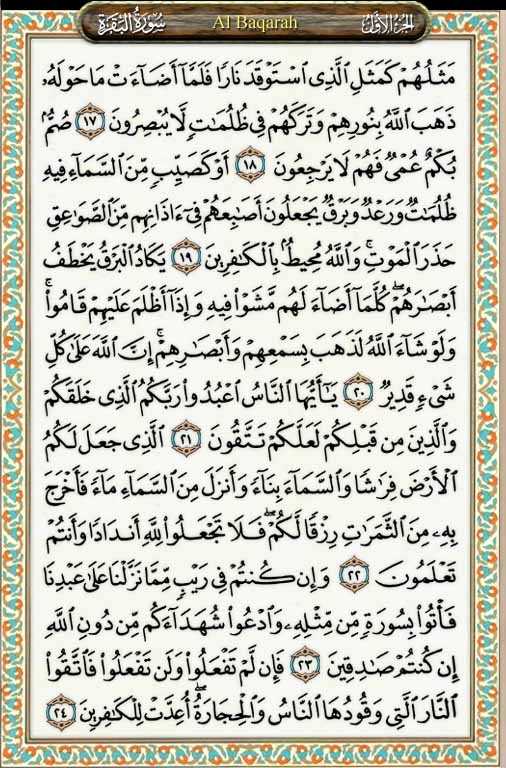 سُورَةُ البَقَرَةِ Al Baqarah الجُزءُ الأَوَّلُ
مَثَلُهُمْ كَمَثَلِ ٱلَّذِى ٱسْتَوْقَدَ نَارًا فَلَمَّآ أَضَآءَتْ مَا حَوْلَهُۥ
ذَهَبَ ٱللَّهُ بِنُورِهِمْ وَتَرَكَهُمْ فِى ظُلُمَٰتٍ لَّا يُبْصِرُونَ ١٧ صُمٌّۢ
بُكْمٌ عُمْىٌ فَهُمْ لَا يَرْجِعُونَ ١٨ أَوْ كَصَيِّبٍ مِّنَ ٱلسَّمَآءِ فِيهِ
ظُلُمَٰتٌ وَرَعْدٌ وَبَرْقٌ يَجْعَلُونَ أَصَٰبِعَهُمْ فِىٓ ءَاذَانِهِم مِّنَ ٱلصَّوَٰعِقِ
حَذَرَ ٱلْمَوْتِ ۚ وَٱللَّهُ مُحِيطٌۢ بِٱلْكَٰفِرِينَ ١٩ يَكَادُ ٱلْبَرْقُ يَخْطَفُ
أَبْصَٰرَهُمْ ۖ كُلَّمَآ أَضَآءَ لَهُم مَّشَوْا۟ فِيهِ وَإِذَآ أَظْلَمَ عَلَيْهِمْ قَامُوا۟ ۚ
وَلَوْ شَآءَ ٱللَّهُ لَذَهَبَ بِسَمْعِهِمْ وَأَبْصَٰرِهِمْ ۚ إِنَّ ٱللَّهَ عَلَىٰ كُلِّ
شَىْءٍ قَدِيرٌ ٢٠ يَٰٓأَيُّهَا ٱلنَّاسُ ٱعْبُدُوا۟ رَبَّكُمُ ٱلَّذِى خَلَقَكُمْ
وَٱلَّذِينَ مِن قَبْلِكُمْ لَعَلَّكُمْ تَتَّقُونَ ٢١ ٱلَّذِى جَعَلَ لَكُمُ
ٱلْأَرْضَ فِرَٰشًا وَٱلسَّمَآءَ بِنَآءً وَأَنزَلَ مِنَ ٱلسَّمَآءِ مَآءً فَأَخْرَجَ
بِهِۦ مِنَ ٱلثَّمَرَٰتِ رِزْقًا لَّكُمْ ۖ فَلَا تَجْعَلُوا۟ لِلَّهِ أَندَادًا وَأَنتُمْ
تَعْلَمُونَ ٢٢ وَإِن كُنتُمْ فِى رَيْبٍ مِّمَّا نَزَّلْنَا عَلَىٰ عَبْدِنَا
فَأْتُوا۟ بِسُورَةٍ مِّن مِّثْلِهِۦ وَٱدْعُوا۟ شُهَدَآءَكُم مِّن دُونِ ٱللَّهِ
إِن كُنتُمْ صَٰدِقِينَ ٢٣ فَإِن لَّمْ تَفْعَلُوا۟ وَلَن تَفْعَلُوا۟ فَٱتَّقُوا۟
ٱلنَّارَ ٱلَّتِى وَقُودُهَا ٱلنَّاسُ وَٱلْحِجَارَةُ ۖ أُعِدَّتْ لِلْكَٰفِرِينَ ٢٤